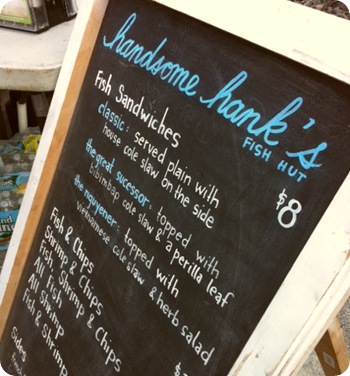 handsome hank's
FISH HUT
Fish Sandwiches
$8
classic: served plain with
house cole slaw on the side
the great sucessor: topped with
bibimbap cole slaw & a perilla leaf
the nguyener: topped with
vietnamese cole slaw & herb salad
Fish & Chips
Shrimp & Chips
Fish, Shrimp & Chips
All Fish
All Shrimp
Fish & Shrimp
Sides